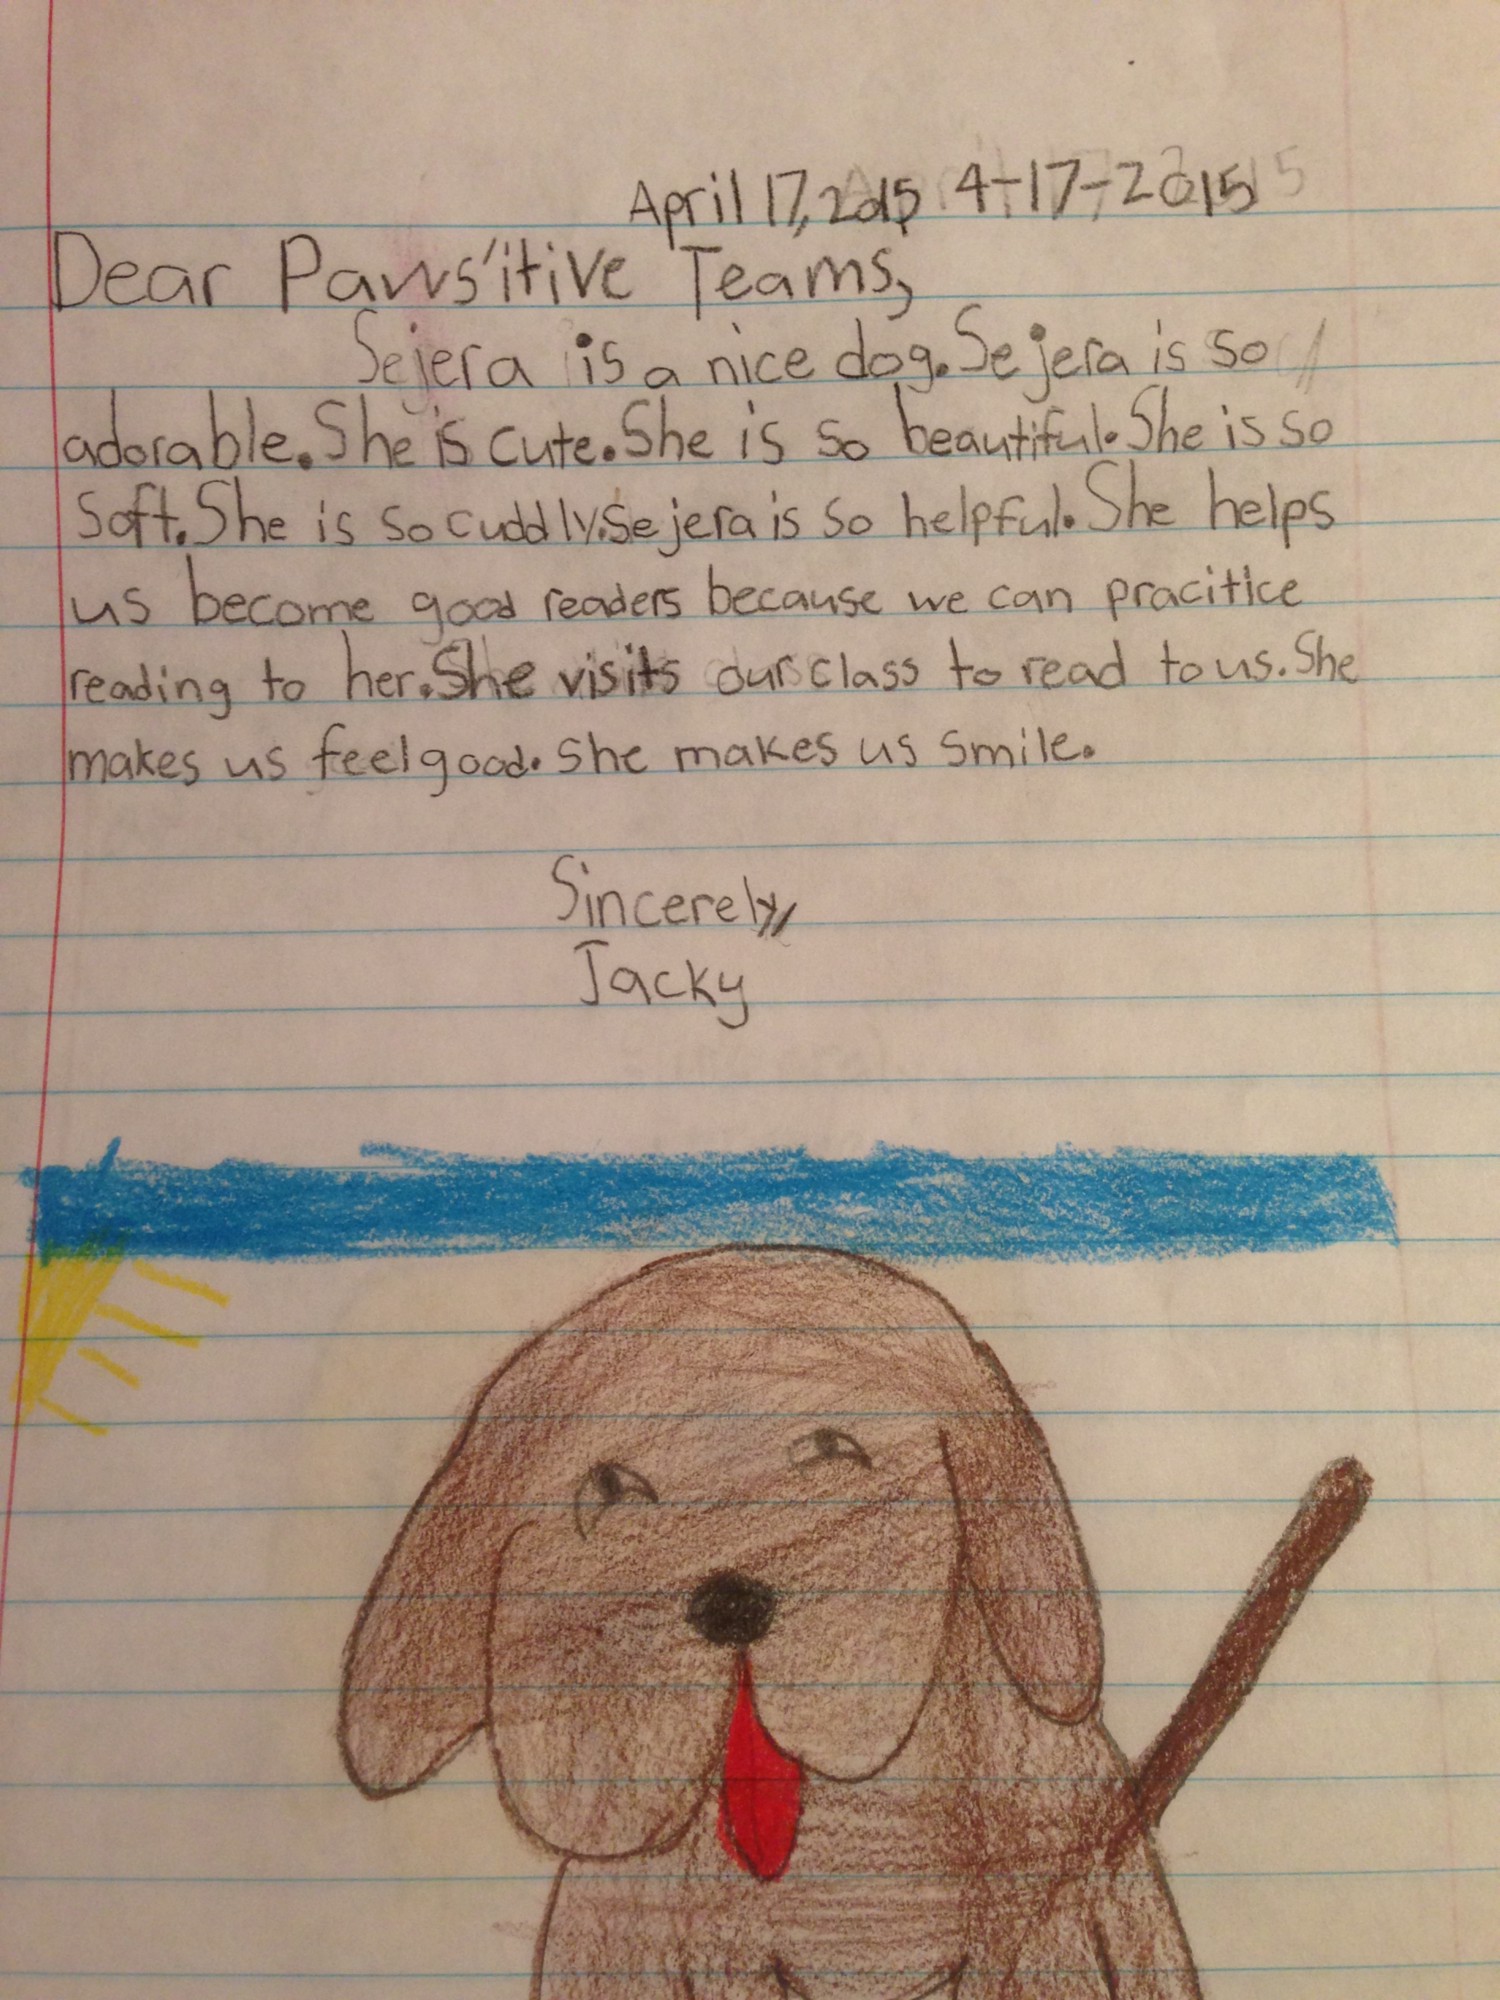 April 17, 2015 4-17-2015
Dear Paws'itive Teams,
Sejera is a nice dog. Sejera is so
adorable. She is cute. She is so beautiful. She is so
soft. She is so cuddly. Sejera is so helpful. She helps
us become good readers because we can pracitice
reading to her. She visits our class to read to us. She
makes us feel good. She makes us smile.
Sincerely,
Jacky